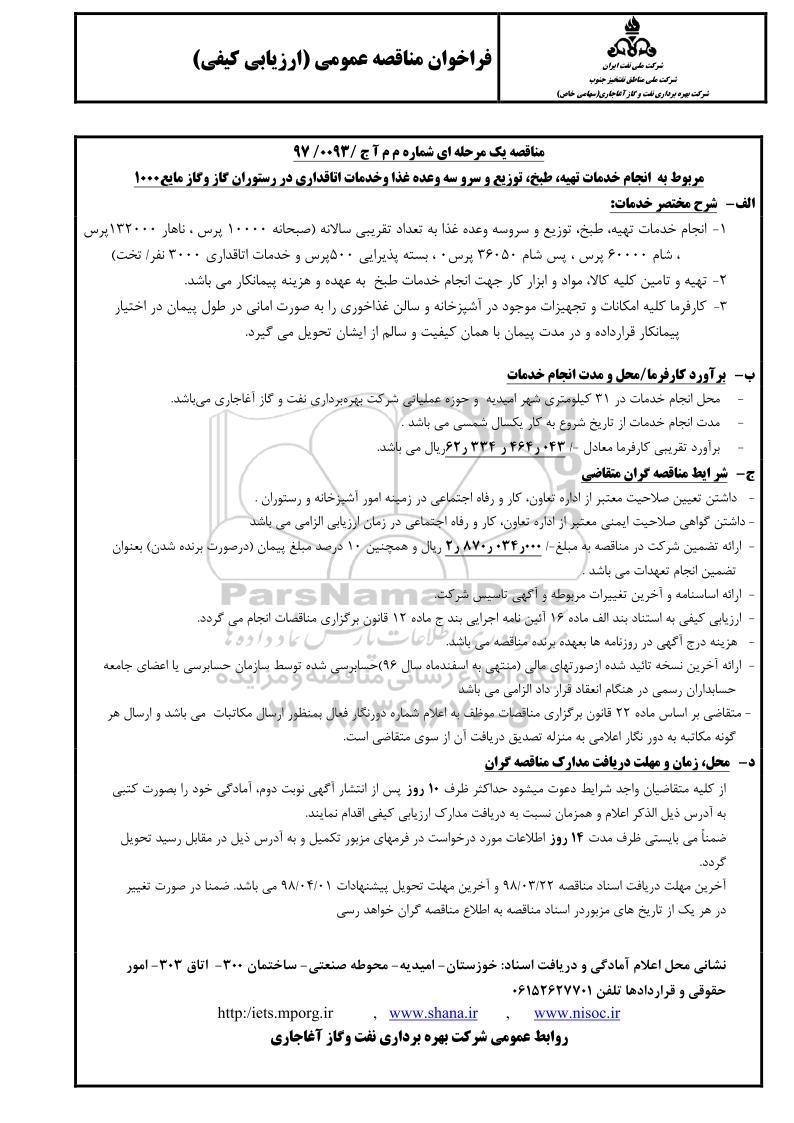 شرکت ملی نفت ایران
شرکت ملی مناطق نفتخیز جنوب
شرکت بهره برداری نفت و گاز آغاجاری(سهامی خاص)
فراخوان مناقصه عمومی (ارزیابی کیفی)
مناقصه یک مرحله ای شماره م م آ ج /۰۰۹۳/ ۹۷
مربوط به انجام خدمات تهیه، طبخ، توزیع و سرو سه وعده غذا وخدمات اتاقداری در رستوران گاز وگاز مایع۱۰۰۰
الف- شرح مختصر خدمات:
۱- انجام خدمات تهیه، طبخ، توزیع و سروسه وعده غذا به تعداد تقریبی سالانه (صبحانه ۱۰۰۰۰ پرس ، ناهار ۱۳۲۰۰۰پرس
، شام ۶۰۰۰۰ پرس ، پس شام ۳۶۰۵۰ پرس۰ ، بسته پذیرایی ۵۰۰پرس و خدمات اتاقداری ۳۰۰۰ نفر/ تخت)
۲- تهیه و تامین کلیه کالا، مواد و ابزار کار جهت انجام خدمات طبخ به عهده و هزینه پیمانکار می باشد.
۳- کارفرما کلیه امکانات و تجهیزات موجود در آشپزخانه و سالن غذاخوری را به صورت امانی در طول پیمان در اختیار
پیمانکار قرارداده و در مدت پیمان با همان کیفیت و سالم از ایشان تحویل می گیرد.
ب- برآورد کارفرما/محل و مدت انجام خدمات
- محل انجام خدمات در ۳۱ کیلومتری شهر امیدیه و حوزه عملیاتی شرکت بهره‌برداری نفت و گاز آغاجاری می‌باشد.
- مدت انجام خدمات از تاریخ شروع به کار یکسال شمسی می باشد .
- برآورد تقریبی کارفرما معادل -/ ۰۴۳ر۴۶۴ر ۳۳۴ ر۶۲ریال می باشد.
ج- شرایط مناقصه گران متقاضی
- داشتن تعیین صلاحیت معتبر از اداره تعاون، کار و رفاه اجتماعی در زمینه امور آشپزخانه و رستوران .
- داشتن گواهی صلاحیت ایمنی معتبر از اداره تعاون، کار و رفاه اجتماعی در زمان ارزیابی الزامی می باشد
- ارائه تضمین شرکت در مناقصه به مبلغ-/ ۰۰۰ر۰۳۴ر ۸۷۰ر۲ ریال و همچنین ۱۰ درصد مبلغ پیمان (درصورت برنده شدن) بعنوان
تضمین انجام تعهدات می باشد .
- ارائه اساسنامه و آخرین تغییرات مربوطه و آگهی تاسیس شرکت.
- ارزیابی کیفی به استناد بند الف ماده ۱۶ آئین نامه اجرایی بند ج ماده ۱۲ قانون برگزاری مناقصات انجام می گردد.
- هزینه درج آگهی در روزنامه ها بعهده برنده مناقصه می باشد.
- ارائه آخرین نسخه تائید شده ازصورتهای مالی (منتهی به اسفندماه سال ۹۶)حسابرسی شده توسط سازمان حسابرسی یا اعضای جامعه
حسابداران رسمی در هنگام انعقاد قرار داد الزامی می باشد
- متقاضی بر اساس ماده ۲۲ قانون برگزاری مناقصات موظف به اعلام شماره دورنگار فعال بمنظور ارسال مکاتبات می باشد و ارسال هر
گونه مکاتبه به دور نگار اعلامی به منزله تصدیق دریافت آن از سوی متقاضی است.
د- محل، زمان و مهلت دریافت مدارک مناقصه گران
از کلیه متقاضیان واجد شرایط دعوت میشود حداکثر ظرف ۱۰ روز پس از انتشار آگهی نوبت دوم، آمادگی خود را بصورت کتبی
به آدرس ذیل الذکر اعلام و همزمان نسبت به دریافت مدارک ارزیابی کیفی اقدام نمایند.
ضمناً می بایستی ظرف مدت ۱۴ روز اطلاعات مورد درخواست در فرمهای مزبور تکمیل و به آدرس ذیل در مقابل رسید تحویل
گردد.
آخرین مهلت دریافت اسناد مناقصه ۹۸/۰۳/۲۲ و آخرین مهلت تحویل پیشنهادات ۹۸/۰۴/۰۱ می باشد. ضمنا در صورت تغییر
در هر یک از تاریخ های مزبوردر اسناد مناقصه به اطلاع مناقصه گران خواهد رسی
نشانی محل اعلام آمادگی و دریافت اسناد: خوزستان- امیدیه- محوطه صنعتی- ساختمان ۳۰۰- اتاق ۳۰۳- امور
حقوقی و قراردادها تلفن ۰۶۱۵۲۶۲۷۷۰۱
http:/iets.mporg.ir , www.shana.ir , www.nisoc.ir
روابط عمومی شرکت بهره برداری نفت وگاز آغاجاری
ParsNamadData
پایگاه اطلاع رسانی مناقصه و مزایده